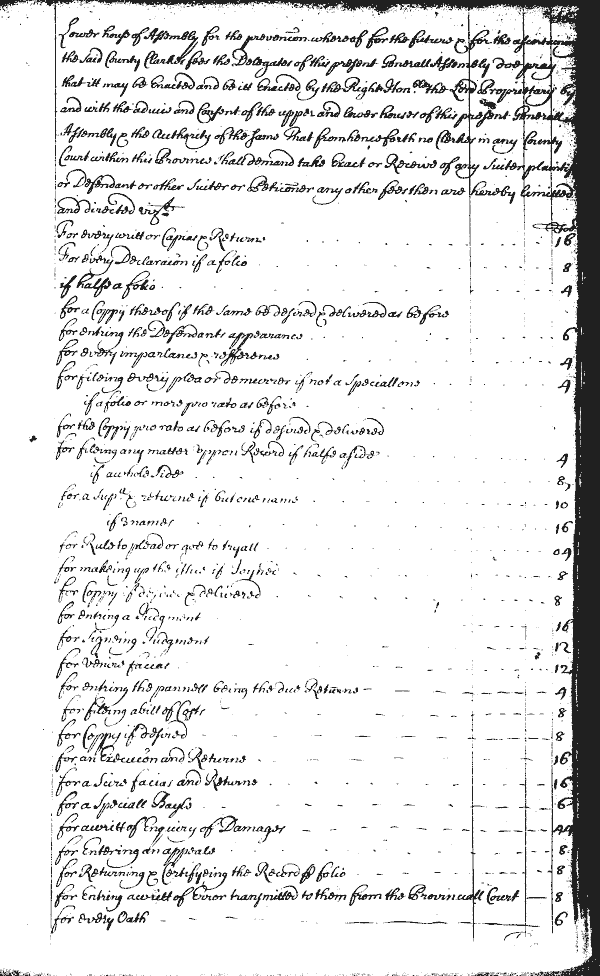 Lower house of Assembly for the prevencon whereof for the future & for the ascertaining
the said County Clarkes fees the Delegates of this present Generall Assembly doe pray
that itt may be Enacted and be itt Enacted by the Right Honble the Lord Proprietary by
and with the advice and Consent of the upper and lower houses of this present Generall
Assembly & the Authority of the same That from henceforth no Clerkes in any County
Court within this Province shall demand take Exact or Receive of any Suiter plaintif
or Defendant or other Suiter or Peticoner any other fees then are hereby limitted
and directed vizt
For every writt or Capias & Returne 16
For every Declaracon if a folio 8
if halfe a folio 4
for a Coppy thereof if the same be desired & delivered as before
for entring the Defendants appearance 6
for every imparlance & refference 4
for fileing every plea or demurrer if not a speciall one 4
if a folio or more pro rato as before
for the Coppy pro rato as before if desired & delivered
for fileing any matter uppon Record if halfe a side 4
if a whole side 8
for a Supa & returne if but one name 10
if 3 names 16
for Rule to plead or goe to tryall 04
for makeing up the issue if Joyned 8
for Coppy if desired & delivered 8
for entring a Judgment 16
for Signeing Judgment 12
for venire facias 12
for entring the pannell being the due Returne 4
for fileing a bill of Costs 8
for Coppy if desired 8
for an Execucon and Returne 16
for a Scire facias and Returne 16
for a Speciall Bayle 6
for a writt of Enquiry of Damages 44
for Entering an appeale 8
for Returning & Certifyeing the Record p folio 8
for Entring a writt of Error transmitted to them from the Provinciall Court 8
for every Oath 6